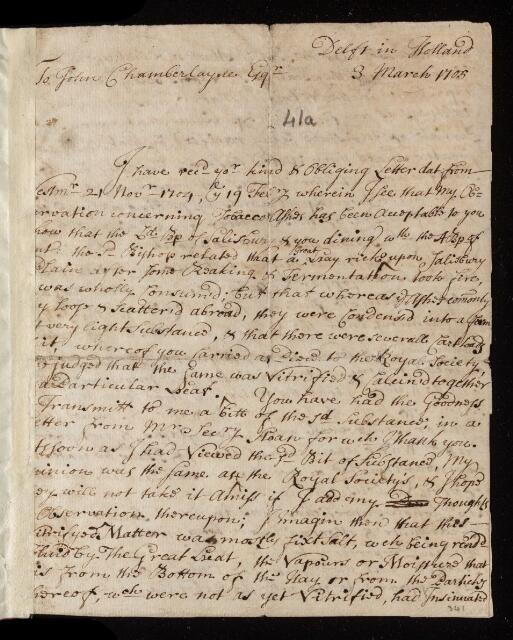 Delft in Holland
3 March 1705
To John Chamberlayne Esqr
41a
I have recd yor kind & Obliging Letter dat from
Westmr 21 Novr 1704, & 19 Feb wherein I see that my Ob-
servation concerning Tobacco Ashes has been Acceptable to you
how that the Ld Bp of Salisbury & you dining wth the ABp of
the sd Bishop related that a great Hay rick upon Salisbury
Plain after some Reaking & Fermentation took fire,
was wholly Consum'd; but that whereas ye Ashes comonly
ly loop & scatter'd abroad, they were condens'd into a
very light substance, & that there were severall Cart loads
it whereof you Carried a Piece to the Royal Society
judged that the same was Vitrified & Calcin'd together
a particular Heat. You have had the Goodness
Transmitt to me a bitt of the sd substance in a
Letter from Mr Secry Sloan for wch I thank you.
assoon as I had Viewed the sd Bit of Substance, My
opinion was the same as the Royal Society's, & I hope
they will not take it Amiss if I add my Thoughts
Observation thereupon; I Imagin then that this
vitrifyed Matter was mostly fixt Salt, wch being
by The Great Heat, the Vapours or Moisture that
is from the Bottom of the Hay or from the Particles
thereof wch were not as yet Vitrified, had Insinuated
341